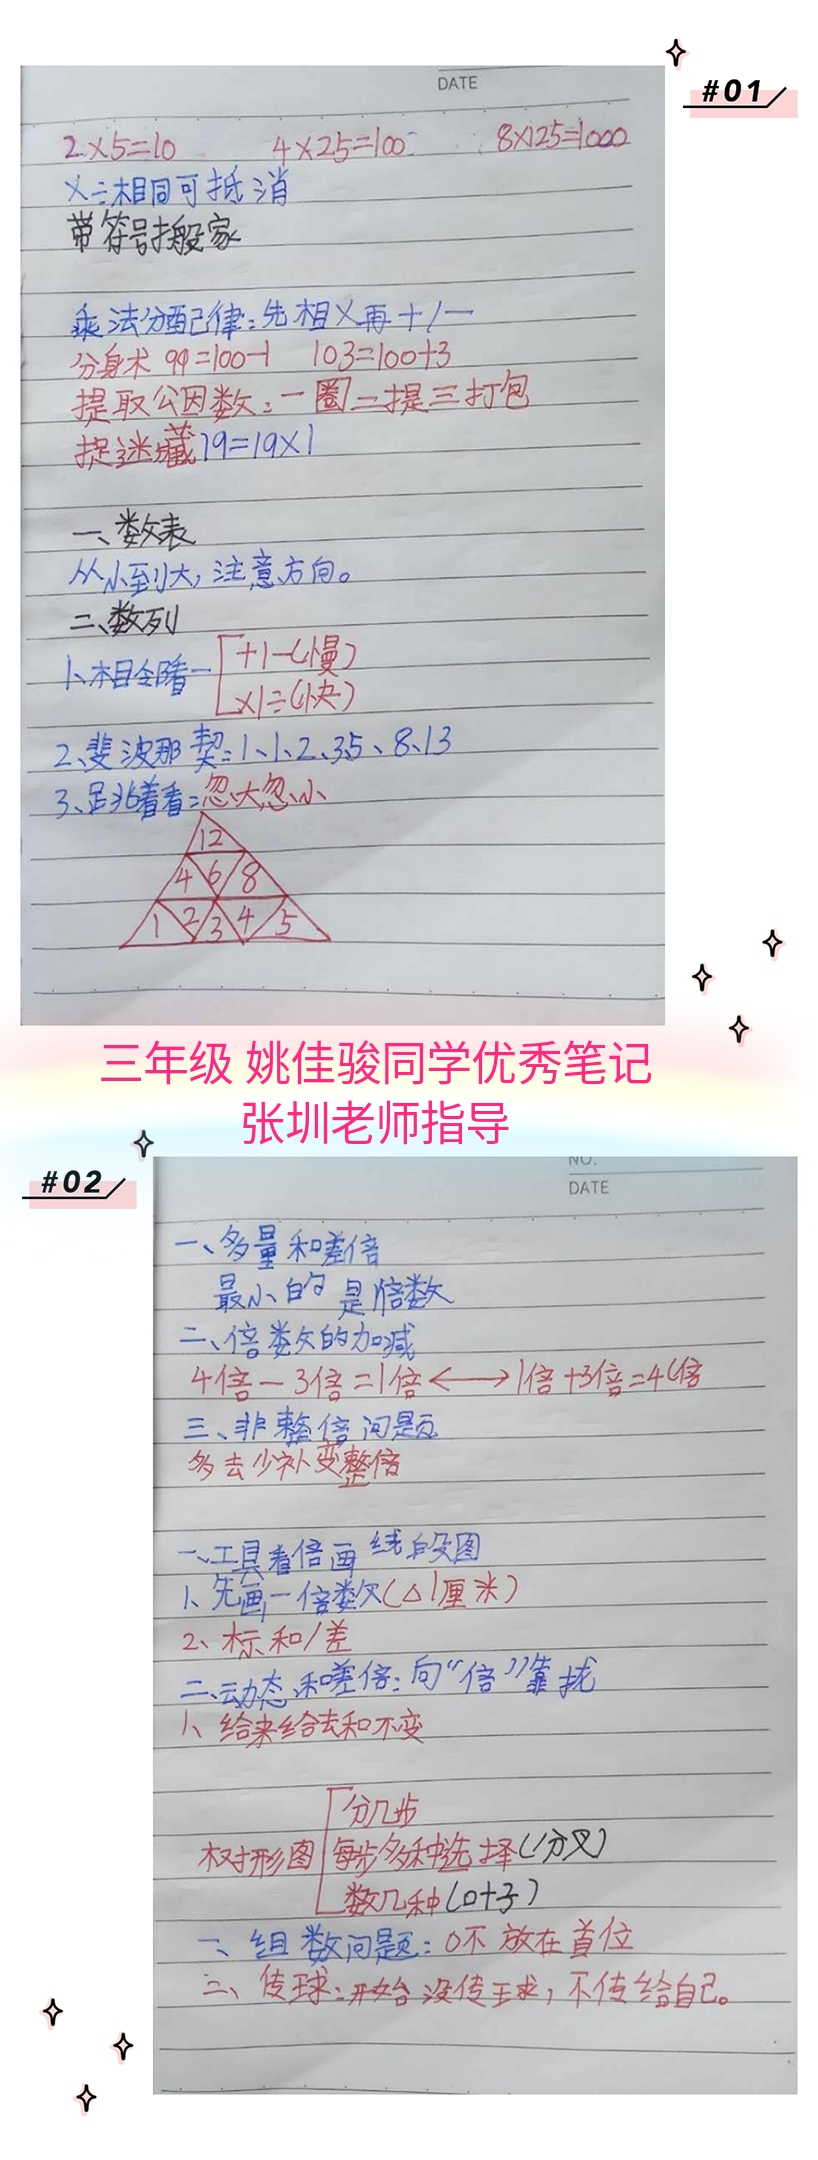 #01
DATE
2×5=10 4×25=100 8×125=1000
×÷相同可抵消
带符号搬家
乘法分配律：先相×再+/-
分身术 99=100-1 103=100+3
提取公因数：一圈二提三打包
捉迷藏 19=19×1
一、数表
从小到大，注意方向。
二、数列
1、相邻看
+/-(慢)
×/÷(快)
2、斐波那契：1、1、2、3、5、8、13
3、跳着看：忽大忽小
12
4 6 8
1 2 3 4 5
三年级 姚佳骏同学优秀笔记
张圳老师指导
#02
NO.
DATE
一、多量和差倍
最小的是1倍数
二、倍数的加减
4倍-3倍=1倍⟷1倍+3倍=4倍
三、非整倍问题
多去少补变整倍
一、工具看倍画线段图
1、先画一倍数(△1厘米)
2、标和/差
二、动态和差倍：向“倍”靠拢
1、给来给去和不变
树形图
分几步
每步多种选择(分叉)
数几种(叶子)
一、组数问题：0不放在首位
二、传球：开始没传球，不传给自己。